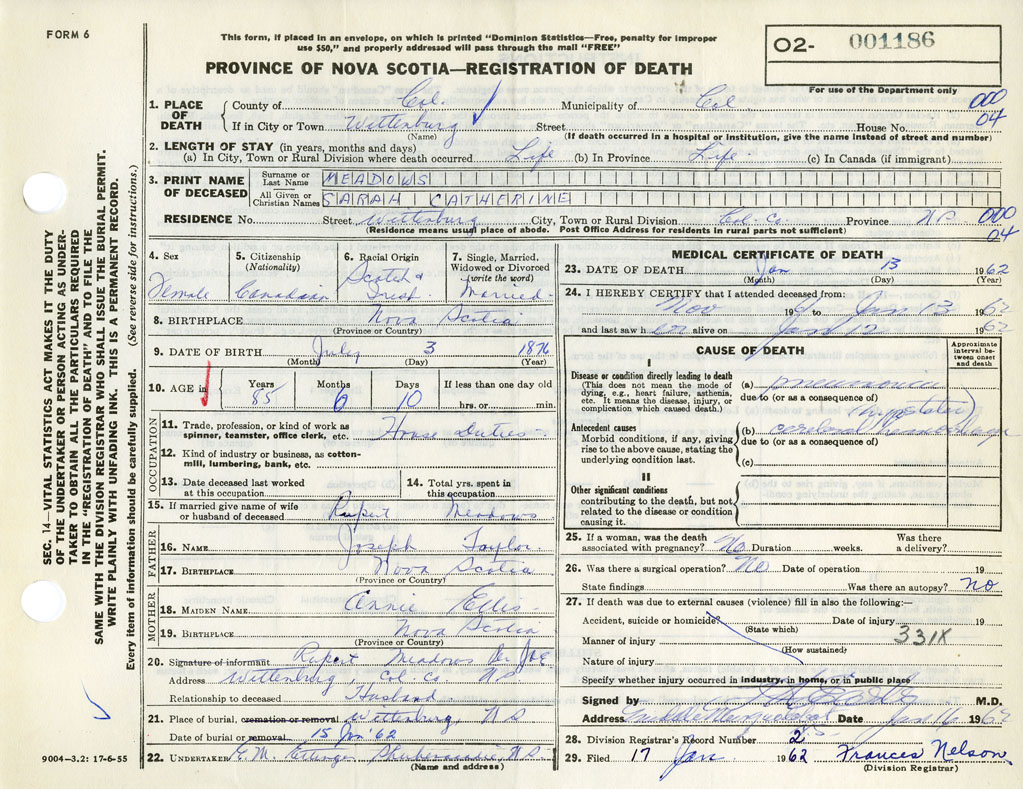 FORM 6
This form, if placed in an envelope, on which is printed "Dominion Statistics—Free, penalty for improper
use $50," and properly addressed will pass through the mail "FREE"
PROVINCE OF NOVA SCOTIA—REGISTRATION OF DEATH
O2- 001186
For use of the Department only
000
04
SEC. 14—VITAL STATISTICS ACT MAKES IT THE DUTY
OF THE UNDERTAKER OR PERSON ACTING AS UNDER-
TAKER TO OBTAIN ALL THE PARTICULARS REQUIRED
IN THE "REGISTRATION OF DEATH" AND TO FILE THE
SAME WITH THE DIVISION REGISTRAR WHO SHALL ISSUE THE BURIAL PERMIT.
WRITE PLAINLY WITH UNFADING INK. THIS IS A PERMANENT RECORD.
Every item of information should be carefully supplied. (See reverse side for instructions.)
1. PLACE OF DEATH
County of Col. Municipality of Col
If in City or Town Wittenburg Street House No.
(Name) (If death occurred in a hospital or institution, give the name instead of street and number)
2. LENGTH OF STAY (in years, months and days)
(a) In City, Town or Rural Division where death occurred Life (b) In Province Life. (c) In Canada (if immigrant)
3. PRINT NAME OF DECEASED
Surname or Last Name MEADOWS
All Given or Christian Names SARAH CATHERINE
RESIDENCE No. Street Wittenburg City, Town or Rural Division Col. Co. Province N.S. 000
(Residence means usual place of abode. Post Office Address for residents in rural parts not sufficient) 04
4. Sex
Female
5. Citizenship
(Nationality)
Canadian
6. Racial Origin
Scotch &
Irish
7. Single, Married,
Widowed or Divorced
(write the word)
Married.
8. BIRTHPLACE Nova Scotia
(Province or Country)
9. DATE OF BIRTH July 3 1876
(Month) (Day) (Year)
10. AGE in
Years 85
Months 6
Days 10
If less than one day old
hrs. or min.
OCCUPATION
11. Trade, profession, or kind of work as
spinner, teamster, office clerk, etc. House Duties
12. Kind of industry or business, as cotton-
mill, lumbering, bank, etc.
13. Date deceased last worked
at this occupation
14. Total yrs. spent in
this occupation
15. If married give name of wife
or husband of deceased Rupert Meadows
FATHER
16. NAME Joseph Taylor.
17. BIRTHPLACE Nova Scotia
(Province or Country)
MOTHER
18. MAIDEN NAME Annie Ellis
19. BIRTHPLACE Nova Scotia
(Province or Country)
20. Signature of informant Rupert Meadows
Address Wittenburg, Col. Co. N.S
Relationship to deceased Husband
21. Place of burial, cremation or removal Wittenburg N S
Date of burial or removal 15 Jan '62
22. UNDERTAKER E.M. Ettinger Shubenacadie, N.S.
(Name and address)
9004—3.2: 17-6-55
MEDICAL CERTIFICATE OF DEATH
23. DATE OF DEATH Jan 13 1962
(Month) (Day) (Year)
24. I HEREBY CERTIFY that I attended deceased from:
Nov 196 to Jan 13 1962
and last saw her alive on Jan 12 1962
CAUSE OF DEATH
Approximate
interval be-
tween onset
and death
I
Disease or condition directly leading to death
(This does not mean the mode of
dying, e.g., heart failure, asthenia,
etc. It means the disease, injury, or
complication which caused death.)
(a) pneumonia
due to (or as a consequence of)
(hypostatic)
Antecedent causes
Morbid conditions, if any, giving
rise to the above cause, stating the
underlying condition last.
(b) cerebral hemorrhage
due to (or as a consequence of)
(c)
II
Other significant conditions
contributing to the death, but not
related to the disease or condition
causing it.
25. If a woman, was the death
associated with pregnancy? No Duration weeks. Was there
a delivery?
26. Was there a surgical operation? No Date of operation 19
State findings Was there an autopsy? no
27. If death was due to external causes (violence) fill in also the following:—
Accident, suicide or homicide? Date of injury 19
(State which)
331X
Manner of injury
(How sustained)
Nature of injury
Specify whether injury occurred in industry, in home, or in public place
Signed by M.D.
Address Middle Musquodoboit Date Jan 16 1962
28. Division Registrar's Record Number 2
29. Filed 17 Jan. 1962 Frances Nelson
(Division Registrar)